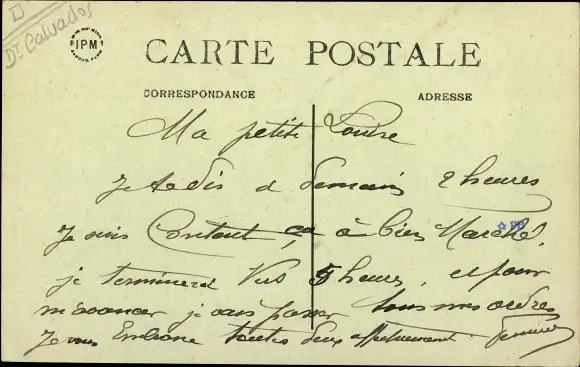 Dt Calvados
IPM
CARTE POSTALE
CORRESPONDANCE
ADRESSE
Ma petite Louise
Je te dis a demain 2 heures
Je suis Content, ça à bien Marché,
je terminerai Vers 5 heures, et pour
m'avancer je vais passer tous mes ordres
Je vous Embrasse toutes deux affectueusement